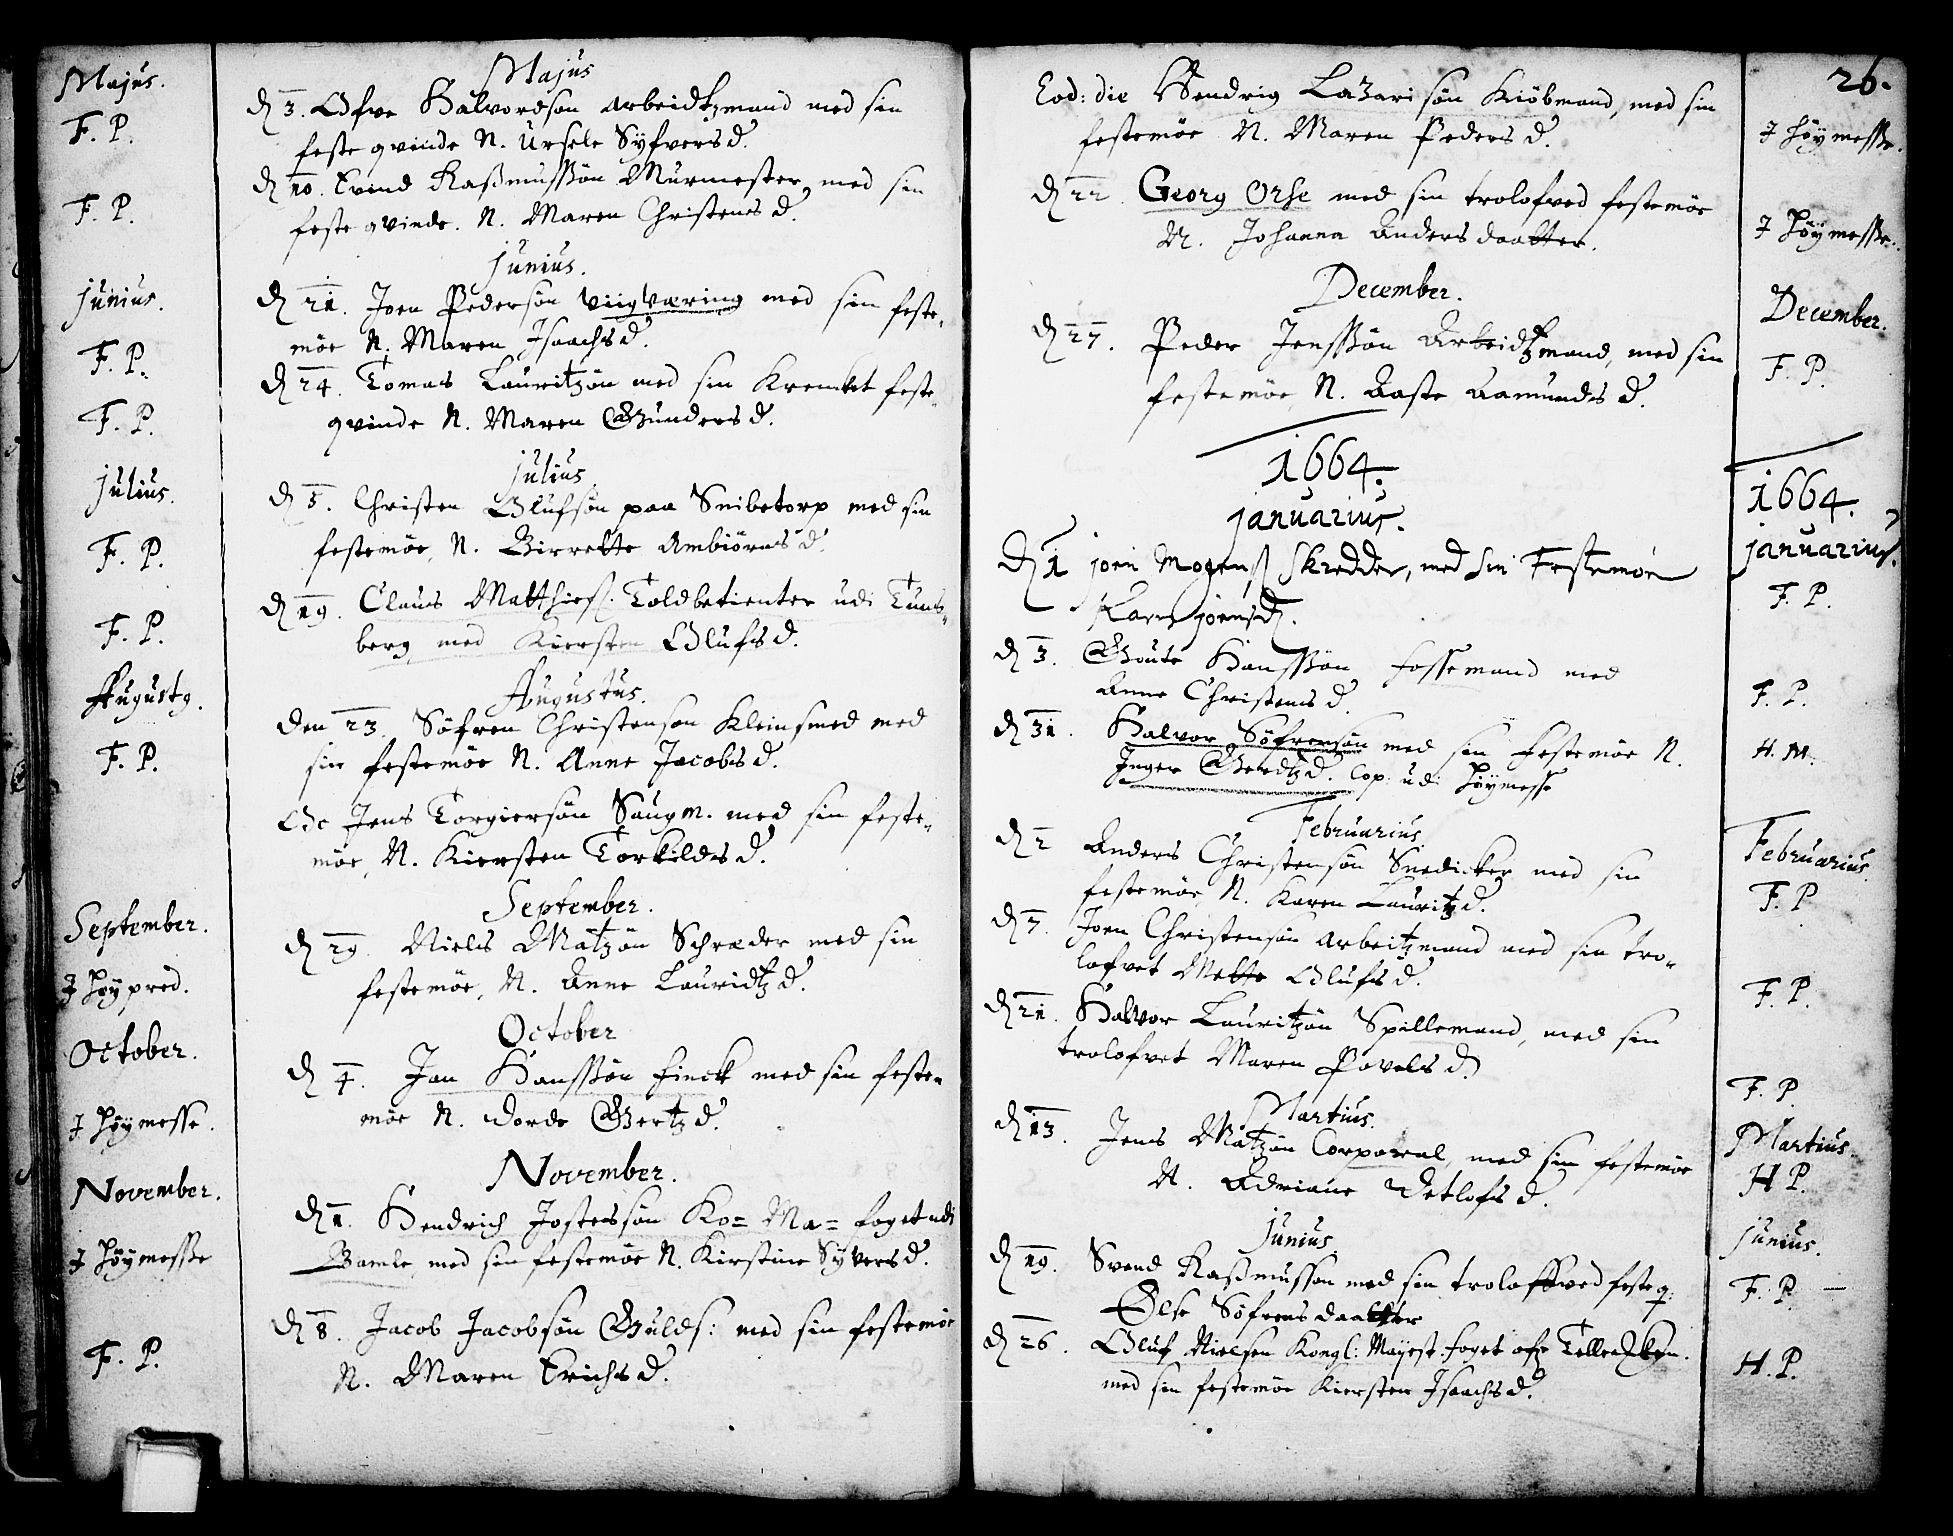 Majus.
F. P.
F. P.
Junius.
F. P.
F. P.
Julius.
F. P.
F. P.
Augustq.
F. P.
September.
J Höypred.
October.
J Höymesse.
November.
J Höymesse
F. P.
Majus
D 3. Olfve Halvordsøn Arbeidtzmand med sin
feste qvinde N. Ursele Syfvers D.
D 10. Evind Raßmussøn Murmester med sin
feste qvinde. N. Maren Christens D.
Junius.
D 21. Joen Pedersøn Viigværing med sin feste-
möe N. Maren Isaachs D.
D 24. Tomas Lauritzøn med sin feste-
qvinde N. Maren Gunders D.
Julius
D 5. Christen Olufsøn paa Snibetorp med sin
festemöe, N. Birrette Ambiörns D.
D 19. Claus Matthies: Toldbetienter udi Tuns-
berg med Kiersten Olufs D.
Augustus.
Den 23. Söfren Christensøn Kleinsmed med
sin festemöe N. Anne Jacobs D.
Oc Jens Torgiersøn Saugm. med sin feste-
möe, N. Kiersten Torkilds D.
September.
D 29. Niels Matzøn Schrøder med sin
festemöe, N. Anne Lauridtz D.
October
D 4. Jan Hanssøn Finck med sin feste-
möe N. Dorde Geertz D.
November.
D 1. Hendrich Jostessøn Ko= Ma= foget udi
Bamle, med sin festemöe N. Kirstine Syvers D.
D 8. Jacob Jacobsøn Gulds: med sin festemöe
N. Maren Erichs D.
26.
Eod: die Hendrig Lazarisøn Kiöbmand, med sin
festemöe N. Maren Peders D.
D 22. Georg Orse med sin trolofved festemöe
N. Johanna Anders daatter.
December.
D 27. Peder Jenssøn Arbeidtzmand, med sin
festemöe, N. Aaste Aamunds D.
1664.
Januarius.
D 1 Joen Mogens Skredder, med sin Festemöe
Karen Joens D.
D 3. Goute Hanssøn Fossemand med
Anne Christens D.
D 31. Halvor Söfrensøn med sin Festemöe N.
Inger Gerdtz D. Cop: udi Höymesse
Februarius
D 2 Anders Christensøn Snedicker med sin
festemöe, N. Karen Lauritz D.
D 7. Joen Christensøn Arbeitzmand med sin tro-
lofvet Mette Olufs D.
D 21. Halvor Lauritzøn Spillemand, med sin
trolofvet Maren Povels D.
Martius.
D 13. Jens Matzøn Corporal, med sin festemöe
N. Adriane Detlofs D.
Junius
D 19. Svend Raßmussøn med sin troloffved festeq:
Else Söfrens daatter
D 26. Oluf Nielsen Kongl: Mayest. foget ofr
med sin festemöe Kiersten Isaachs D.
J Höymesse.
J Höymesse.
December.
F. P.
1664.
Januarius.
F. P.
F. P.
H. M.
Februarius
F. P
F. P.
F. P.
Martius.
H P.
Junius.
F. P.
H. P.